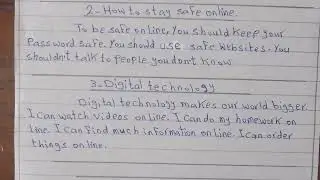 2-How to stay safe online.
To be safe online, You should keep your
Password safe. You should use safe websites. You
shouldn't talk to people you don't know
3-Digital technology
Digital technology makes our world bigger.
I can watch videos online. I can do my homework on
line. I can find much information online. I can order
things online.